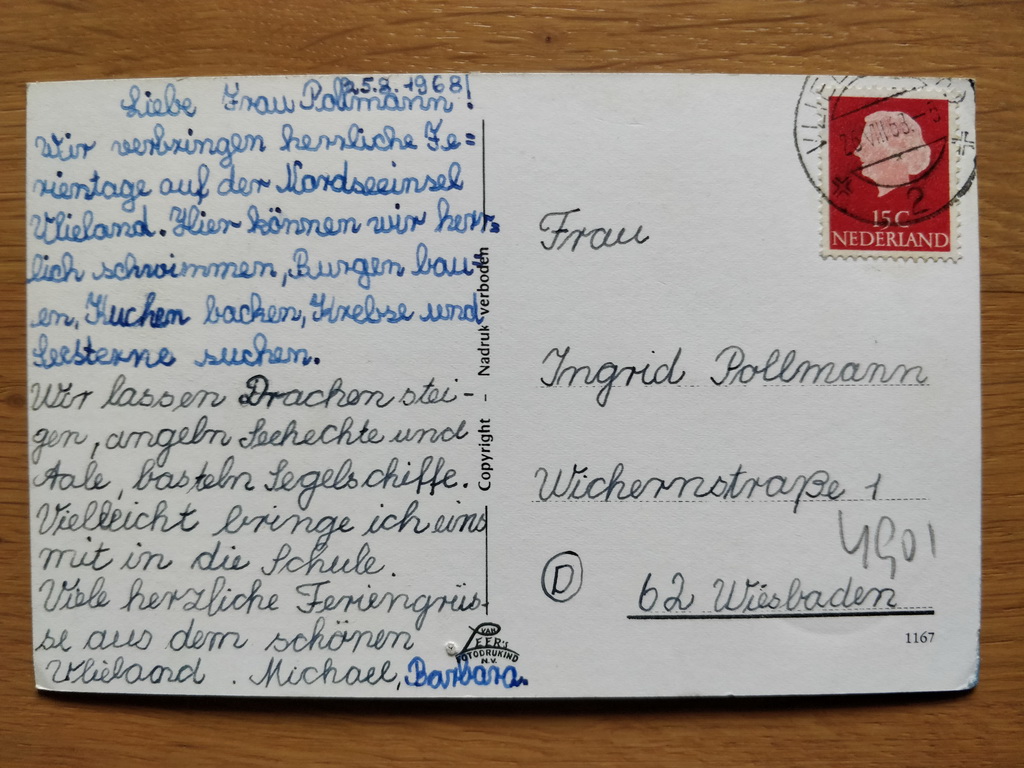 25.8.1968
Liebe Frau Pollmann!
Wir verbringen herrliche Fe=
rientage auf der Nordseeinsel
Vlieland. Hier können wir herr=
lich schwimmen, Burgen bau=
en, Kuchen backen, Krebse und
Seesterne suchen.
Wir lassen Drachen stei-
gen, angeln Seehechte und
Aale, basteln Segelschiffe.
Vielleicht bringe ich eins
mit in die Schule.
Viele herzliche Feriengrüs-
se aus dem schönen
Vlieland. Michael, Barbara.
Copyright - Nadruk verboden
VAN
LEER's
FOTODRUKIND
N.V.
15 C
NEDERLAND
2
Frau
Ingrid Pollmann
Wichernstraße 1
4901
D
62 Wiesbaden
1167